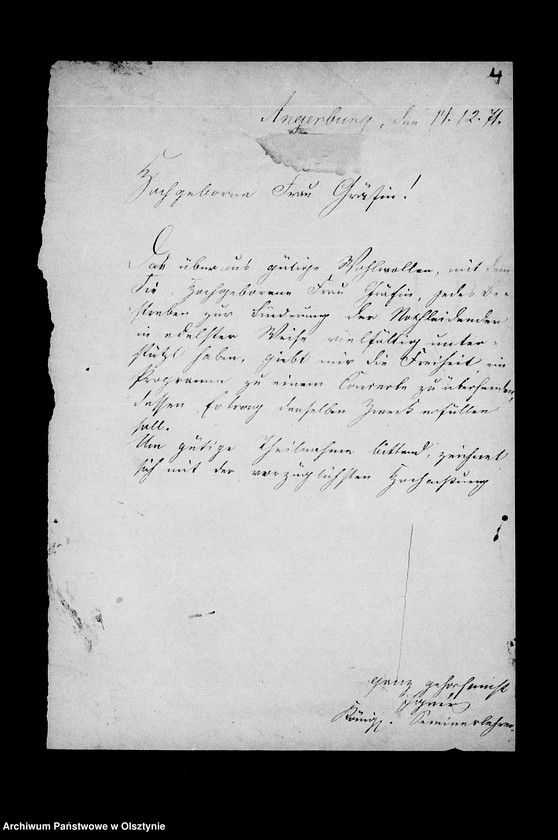 4
Angerburg, den 14. 12. 71.
Hochgeborne Frau Gräfin!
Das überaus gütige Wohlwollen, mit dem
Sie, Hochgeborene Frau Gräfin, jedes Be-
streben zur Linderung der Nothleidenden
in edelster Weise vielfältig unter-
stützt haben, giebt mir die Freiheit ein
Programm zu einem Concerte zu übersenden,
dessen Ertrag denselben Zweck erfüllen
soll.
Um gütige Theilnahme bittend, zeichnet
sich mit der vorzüglichsten Hochachtung
ganz gehorsamst
Königl. Seminarlehrer
Archiwum Państwowe w Olsztynie